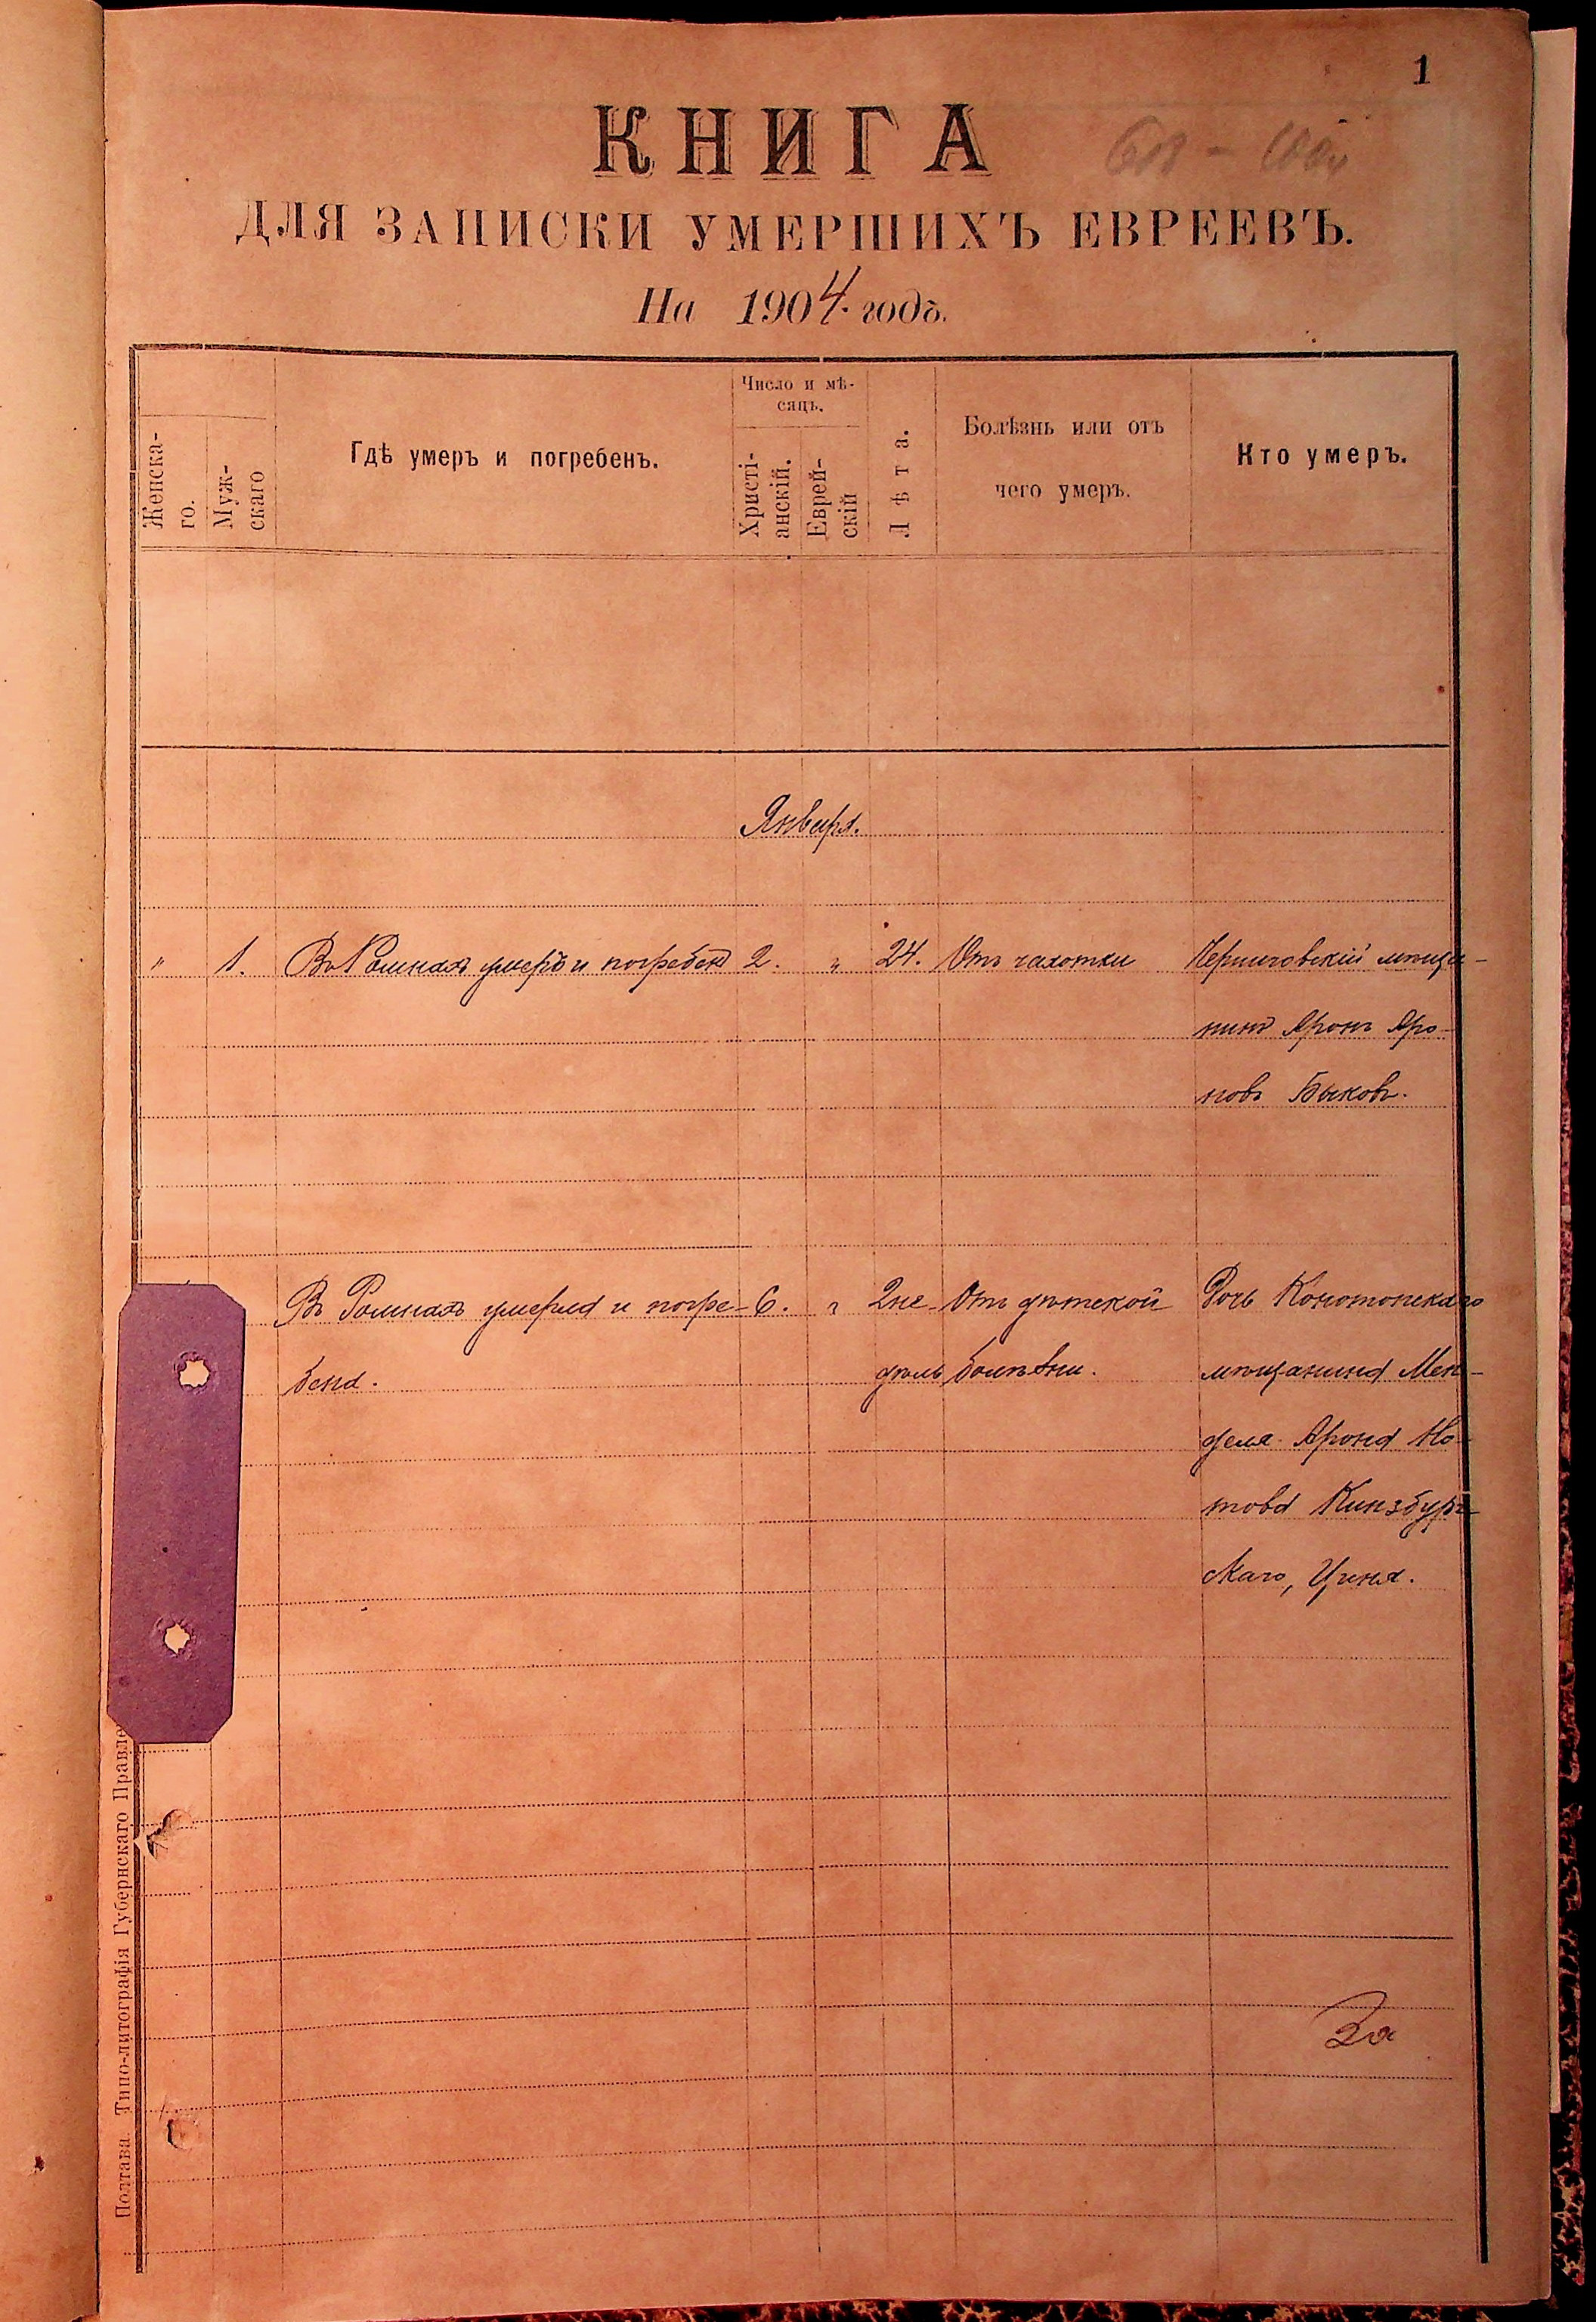 1
КНИГА
ДЛЯ ЗАПИСКИ УМЕРШИХЪ ЕВРЕЕВЪ.
На 1904. годъ.
Женска-
го.
Муж-
скаго
Гдѣ умеръ и погребенъ.
Число и мѣ-
сяцъ.
Христі-
анскій.
Еврей-
скій
Лѣта.
Болѣзнь или отъ
чего умеръ.
Кто умеръ.
Января.
" 1. Въ Ромнахъ умеръ и погребенъ 2. " 24. Отъ чахотки Черниговскій мѣща-
нинъ Аронъ Аро-
новъ Быковъ.
Въ Ромнахъ умерла и погре- 6. " 2 не- Отъ дѣтской Дочь Конотопскаго
бена. дѣль болѣзни. мѣщанина Мен-
деля Арона Но-
това Кинзбург-
скаго, Цына.
За
Полтава. Типо-литографія Губернскаго Правле